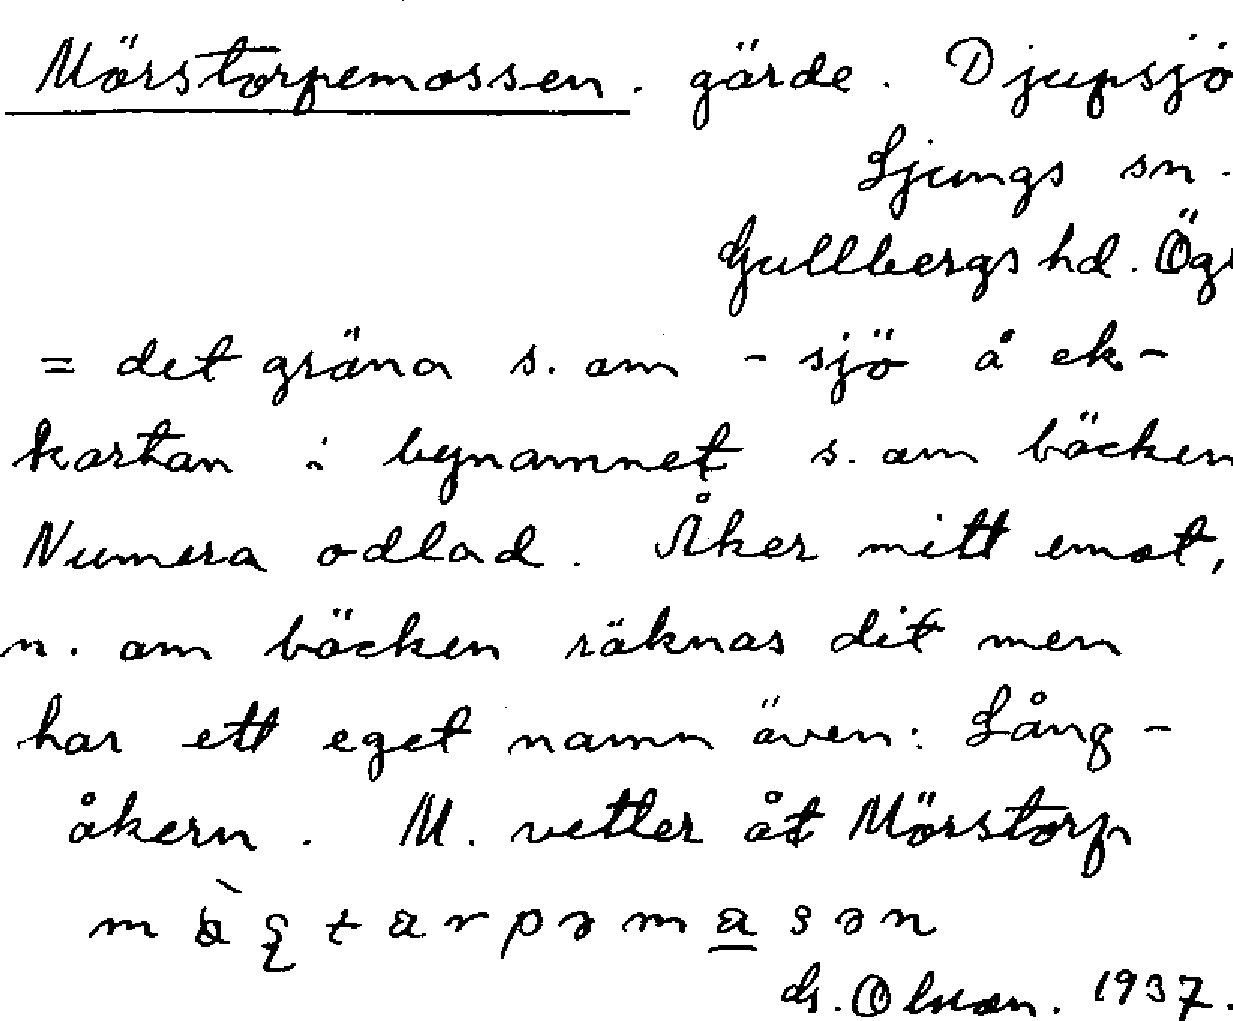 Mörstorpemossen. gärde. Djupsjö
Ljungs sn.
Gullbergs hd. Ög
= det gröna s. om - sjö å ek-
kartan i bynamnet s. om bäcken
Numera odlad. Åker mitt emot,
n. om bäcken räknas dit men
har ett eget namn även: Lång-
åkern. M. vetter åt Mörstorp
G. Olson. 1937.